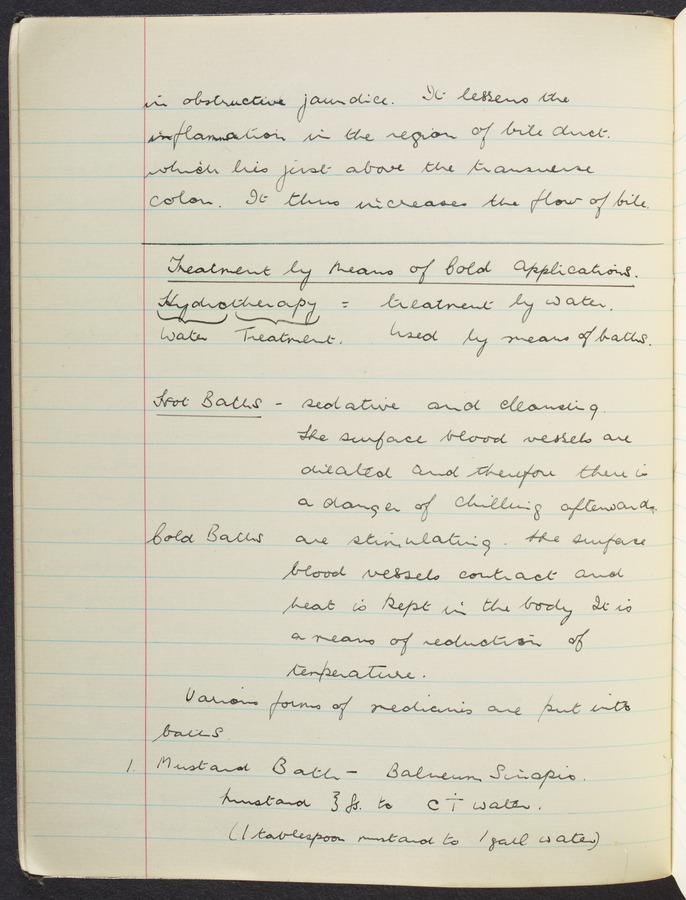 in obstructive jaundice. It lessens the
inflammation in the region of bile duct.
which lies just above the transverse
colon. It thus increases the flow of bile.
Treatment by Means of Cold Applications.
Hydrotherapy = treatment by water.
Water Treatment. Used by means of baths.
Hot Baths - sedative and cleansing.
The surface blood vessels are
dilated and therefore there is
a danger of chilling afterwards.
Cold Baths are stimulating. The surface
blood vessels contract and
heat is kept in the body It is
a means of reduction of
temperature.
Various forms of medicines are put into
baths.
1. Mustard Bath - Balneum Sinapis.
Mustard ℥ fs. to C i water.
(1 tablespoon mustard to 1 gall water)